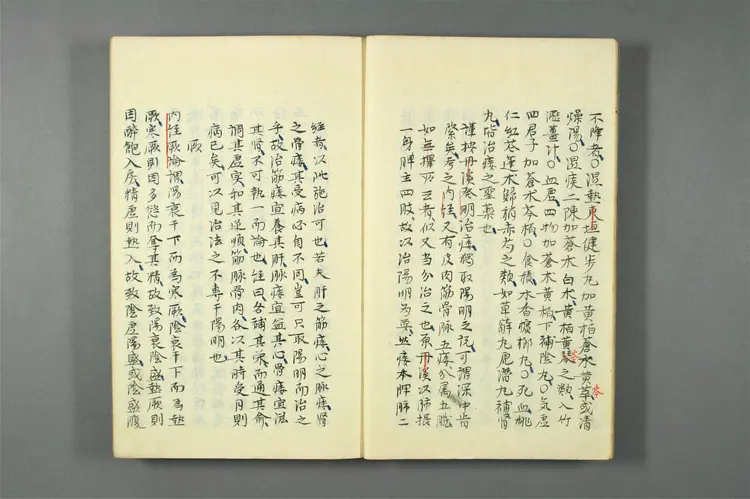 不降者○濕熱東垣健步丸加黃柏蒼朮黃芩或清
燥湯○濕痰二陳加蒼朮白朮黃柏黃芩之類入竹
瀝薑汁○血虛四物加蒼朮黃柏下補陰丸○氣虛
四君子加蒼朮芩柏○食積木香檳榔丸○死血桃
仁紅花蓬朮歸梢赤芍之類如萆薢丸虎潛丸補腎
丸皆治痿之聖藥也
謹按丹溪發明治痿獨取陽明之說可謂深中肯
綮矣考之內經又有皮肉筋骨脉五痿分属五臟
如無擇所云者似又當分治之也原丹溪以肺振
一身脾主四肢故以治陽明為要然痿本脾肺二
經者以此施治可也若夫肝之筋痿心之脉痿腎
之骨痿其受病必自不同豈可只取陽明而治之
乎故治筋痿宜養其肝脉痿宜益其心骨痿宜滋
其腎不可執一而論也経曰各補其滎而通其俞
調其虚实和其逆順筋脉骨肉各以其時受月則
病已矣可以見治法之不專于陽明也
厥
內経厥論謂陽衰于下而為寒厥陰衰于下而為熱
厥寒厥則因多慾而奪其精故致陽衰陰盛熱厥則
因醉飽入房精虚則熱入故致陰虚陽盛或陰盛腹